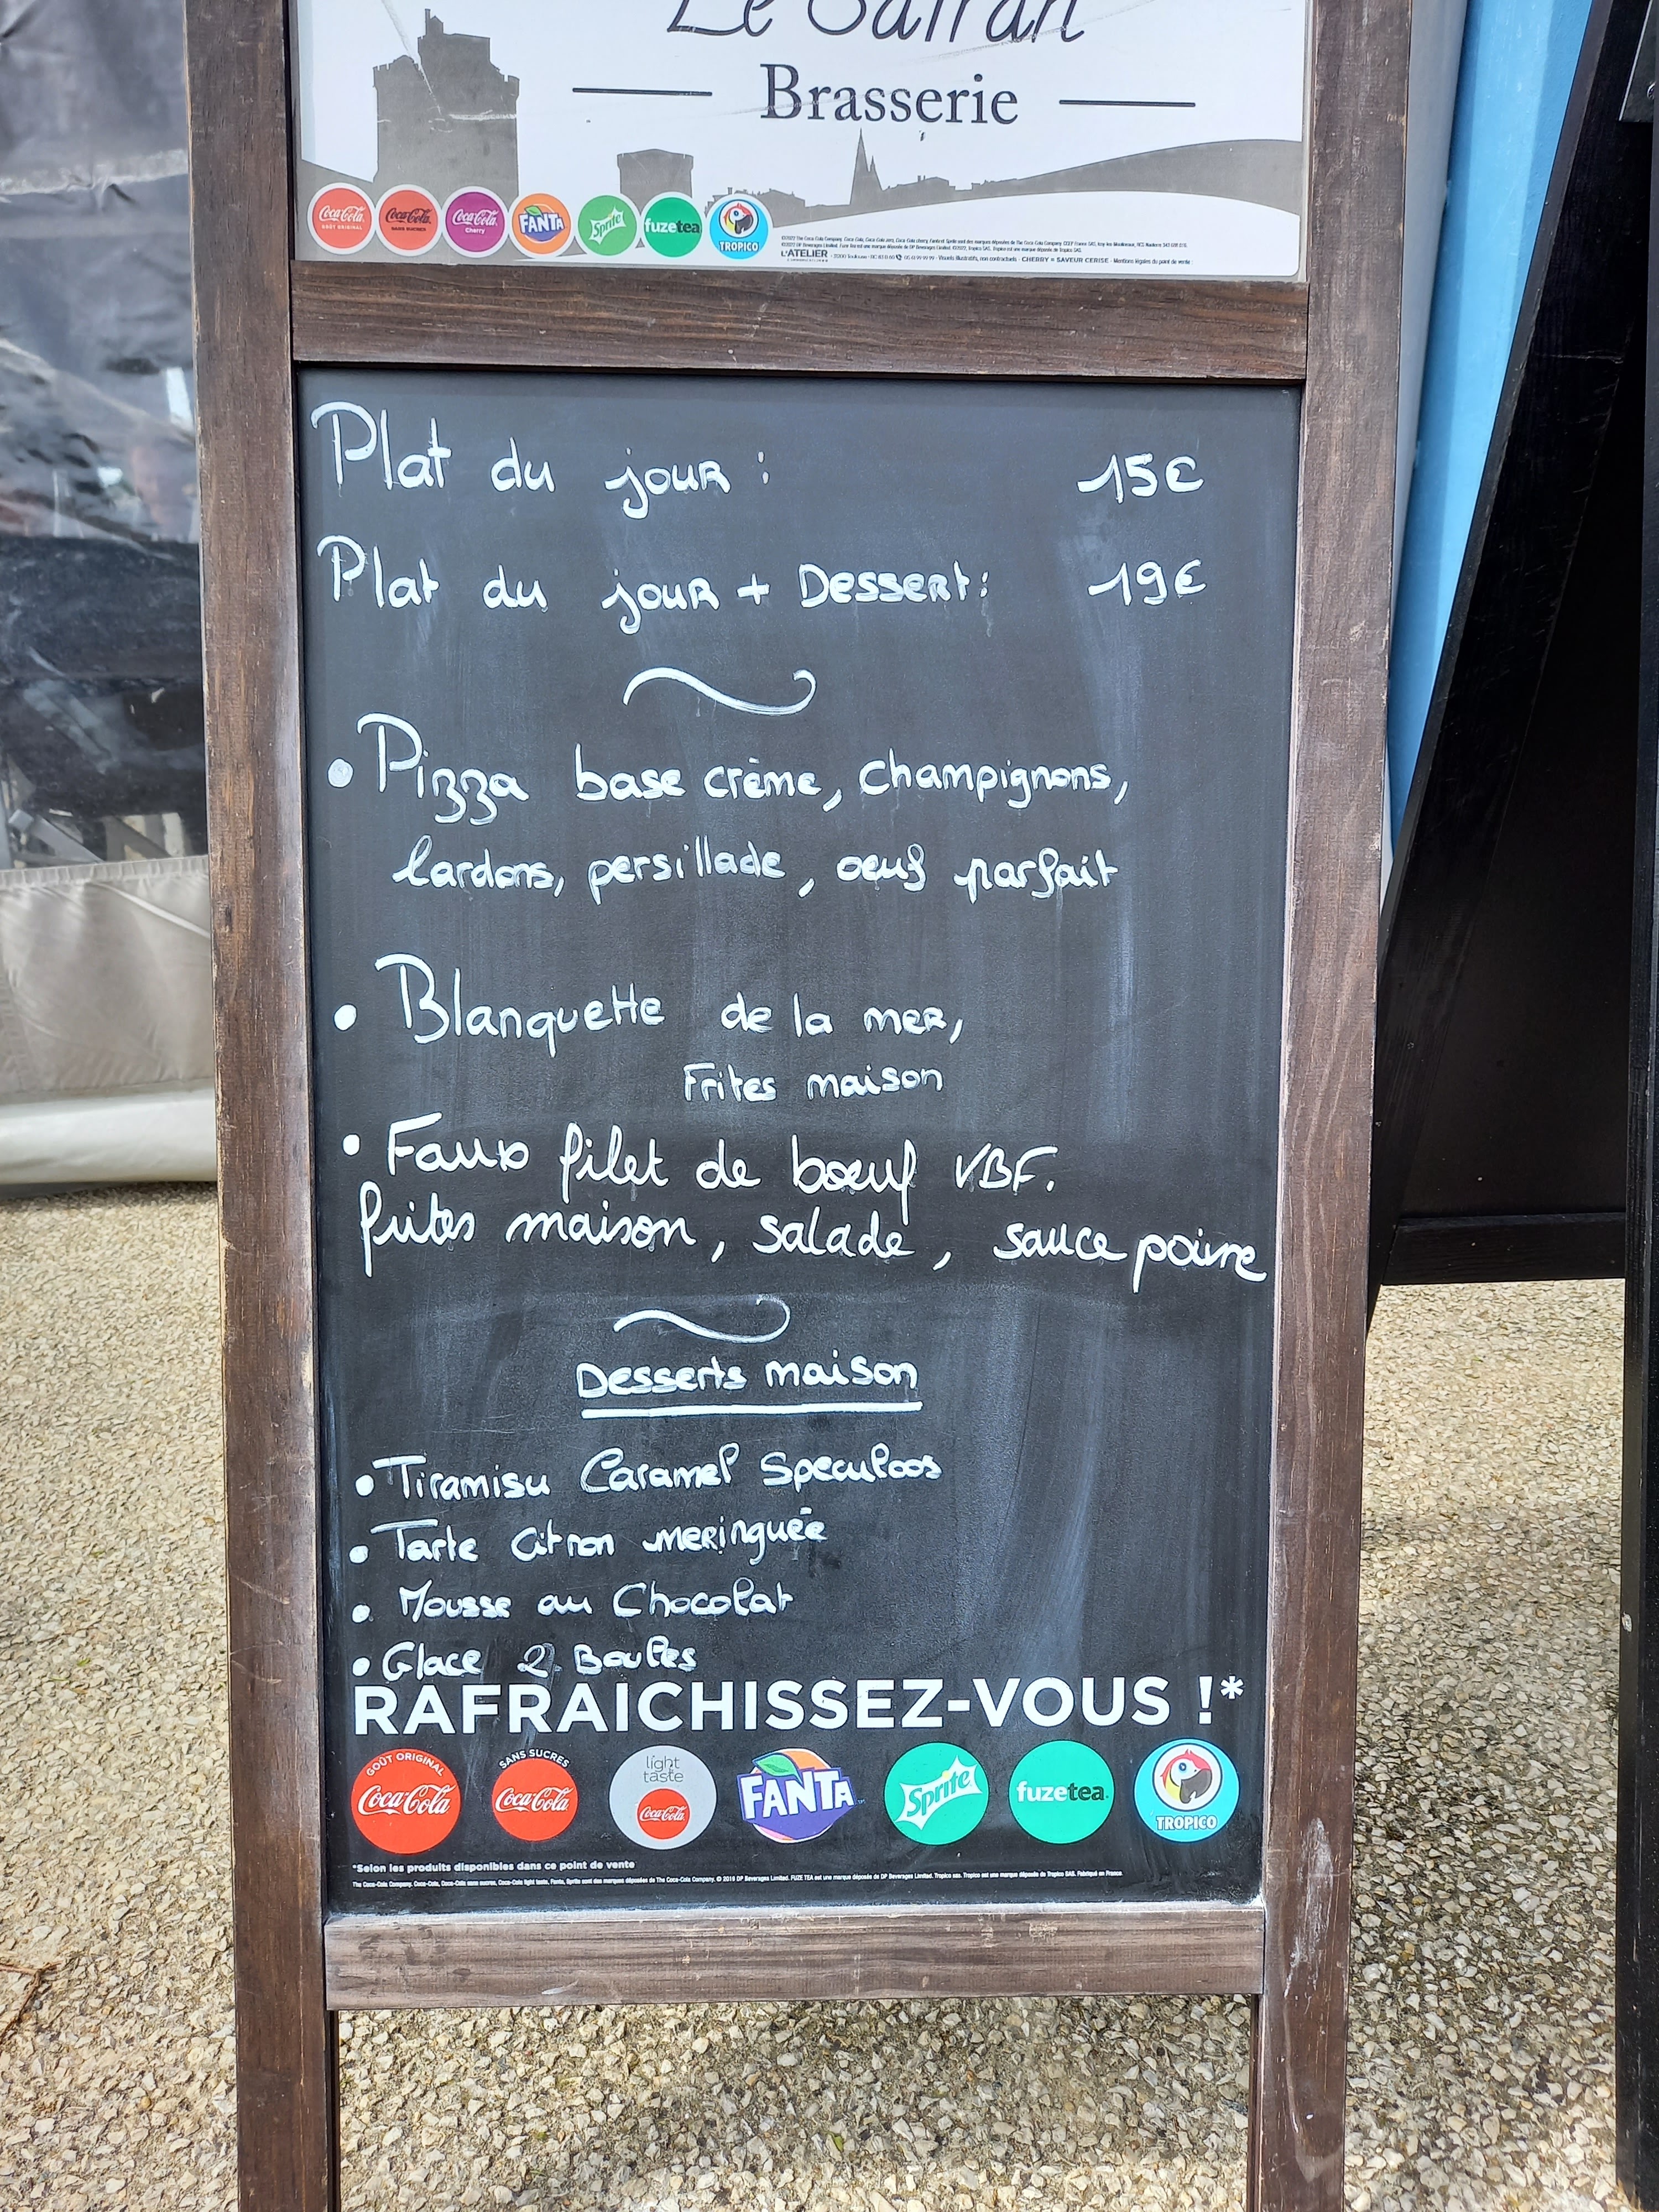 Le Safran
Brasserie
Coca-Cola GOÛT ORIGINAL
Coca-Cola SANS SUCRES
Coca-Cola Cherry
FANTA
Sprite
fuzetea
TROPICO
L'ATELIER
CHERRY = SAVEUR CERISE - Mentions légales du point de vente :
Plat du jour : 15€
Plat du jour + Dessert : 19€
• Pizza base crème, champignons,
lardons, persillade, oeuf parfait
• Blanquette de la mer,
Frites maison
• Faux filet de bœuf VBF.
frites maison, salade, sauce poivre
Desserts maison
• Tiramisu Caramel Speculoos
• Tarte Citron meringuée
• Mousse au Chocolat
• Glace 2 Boules
RAFRAICHISSEZ-VOUS !*
GOÛT ORIGINAL Coca-Cola
SANS SUCRES Coca-Cola
light taste Coca-Cola
FANTA
Sprite
fuzetea
TROPICO
*Selon les produits disponibles dans ce point de vente
The Coca-Cola Company. Coca-Cola, Coca-Cola sans sucres, Coca-Cola light taste, Fanta, Sprite sont des marques déposées de The Coca-Cola Company. © 2019 DP Beverages Limited. FUZE TEA est une marque déposée de DP Beverages Limited. Tropico sas. Tropico est une marque déposée de Tropico SAS. Fabriqué en France.